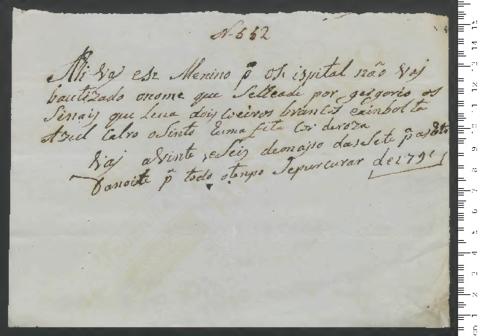 N 552
Ahi Vaj este Menino pª Os ispital não Vaj
bautizado o nome que se lhe ade por gregorio os
Sinais que leua dois coeiros brancos e
Azul e huma fita cor de roza
Vaj a vinte e Seis de majo das sete pª as oito
Da noite pª todo o tenpo Se purcurar de 1791